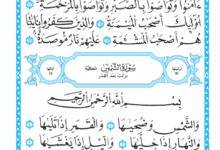 ءَامَنُوا۟ وَتَوَاصَوْا۟ بِٱلصَّبْرِ وَتَوَاصَوْا۟ بِٱلْمَرْحَمَةِ
أُو۟لَٰٓئِكَ أَصْحَٰبُ ٱلْمَيْمَنَةِ وَٱلَّذِينَ كَفَرُوا۟ بِـَٔايَٰتِنَا
هُمْ أَصْحَٰبُ ٱلْمَشْـَٔمَةِ عَلَيْهِمْ نَارٌ مُّؤْصَدَةٌۢ
سُورَةُ الشَّمْسِ مَكِّيَّة
نزلت بعد القدر
بِسْمِ ٱللَّهِ ٱلرَّحْمَٰنِ ٱلرَّحِيمِ
وَٱلشَّمْسِ وَضُحَىٰهَا وَٱلْقَمَرِ إِذَا تَلَىٰهَا
وَٱلنَّهَارِ إِذَا جَلَّىٰهَا وَٱلَّيْلِ إِذَا يَغْشَىٰهَا